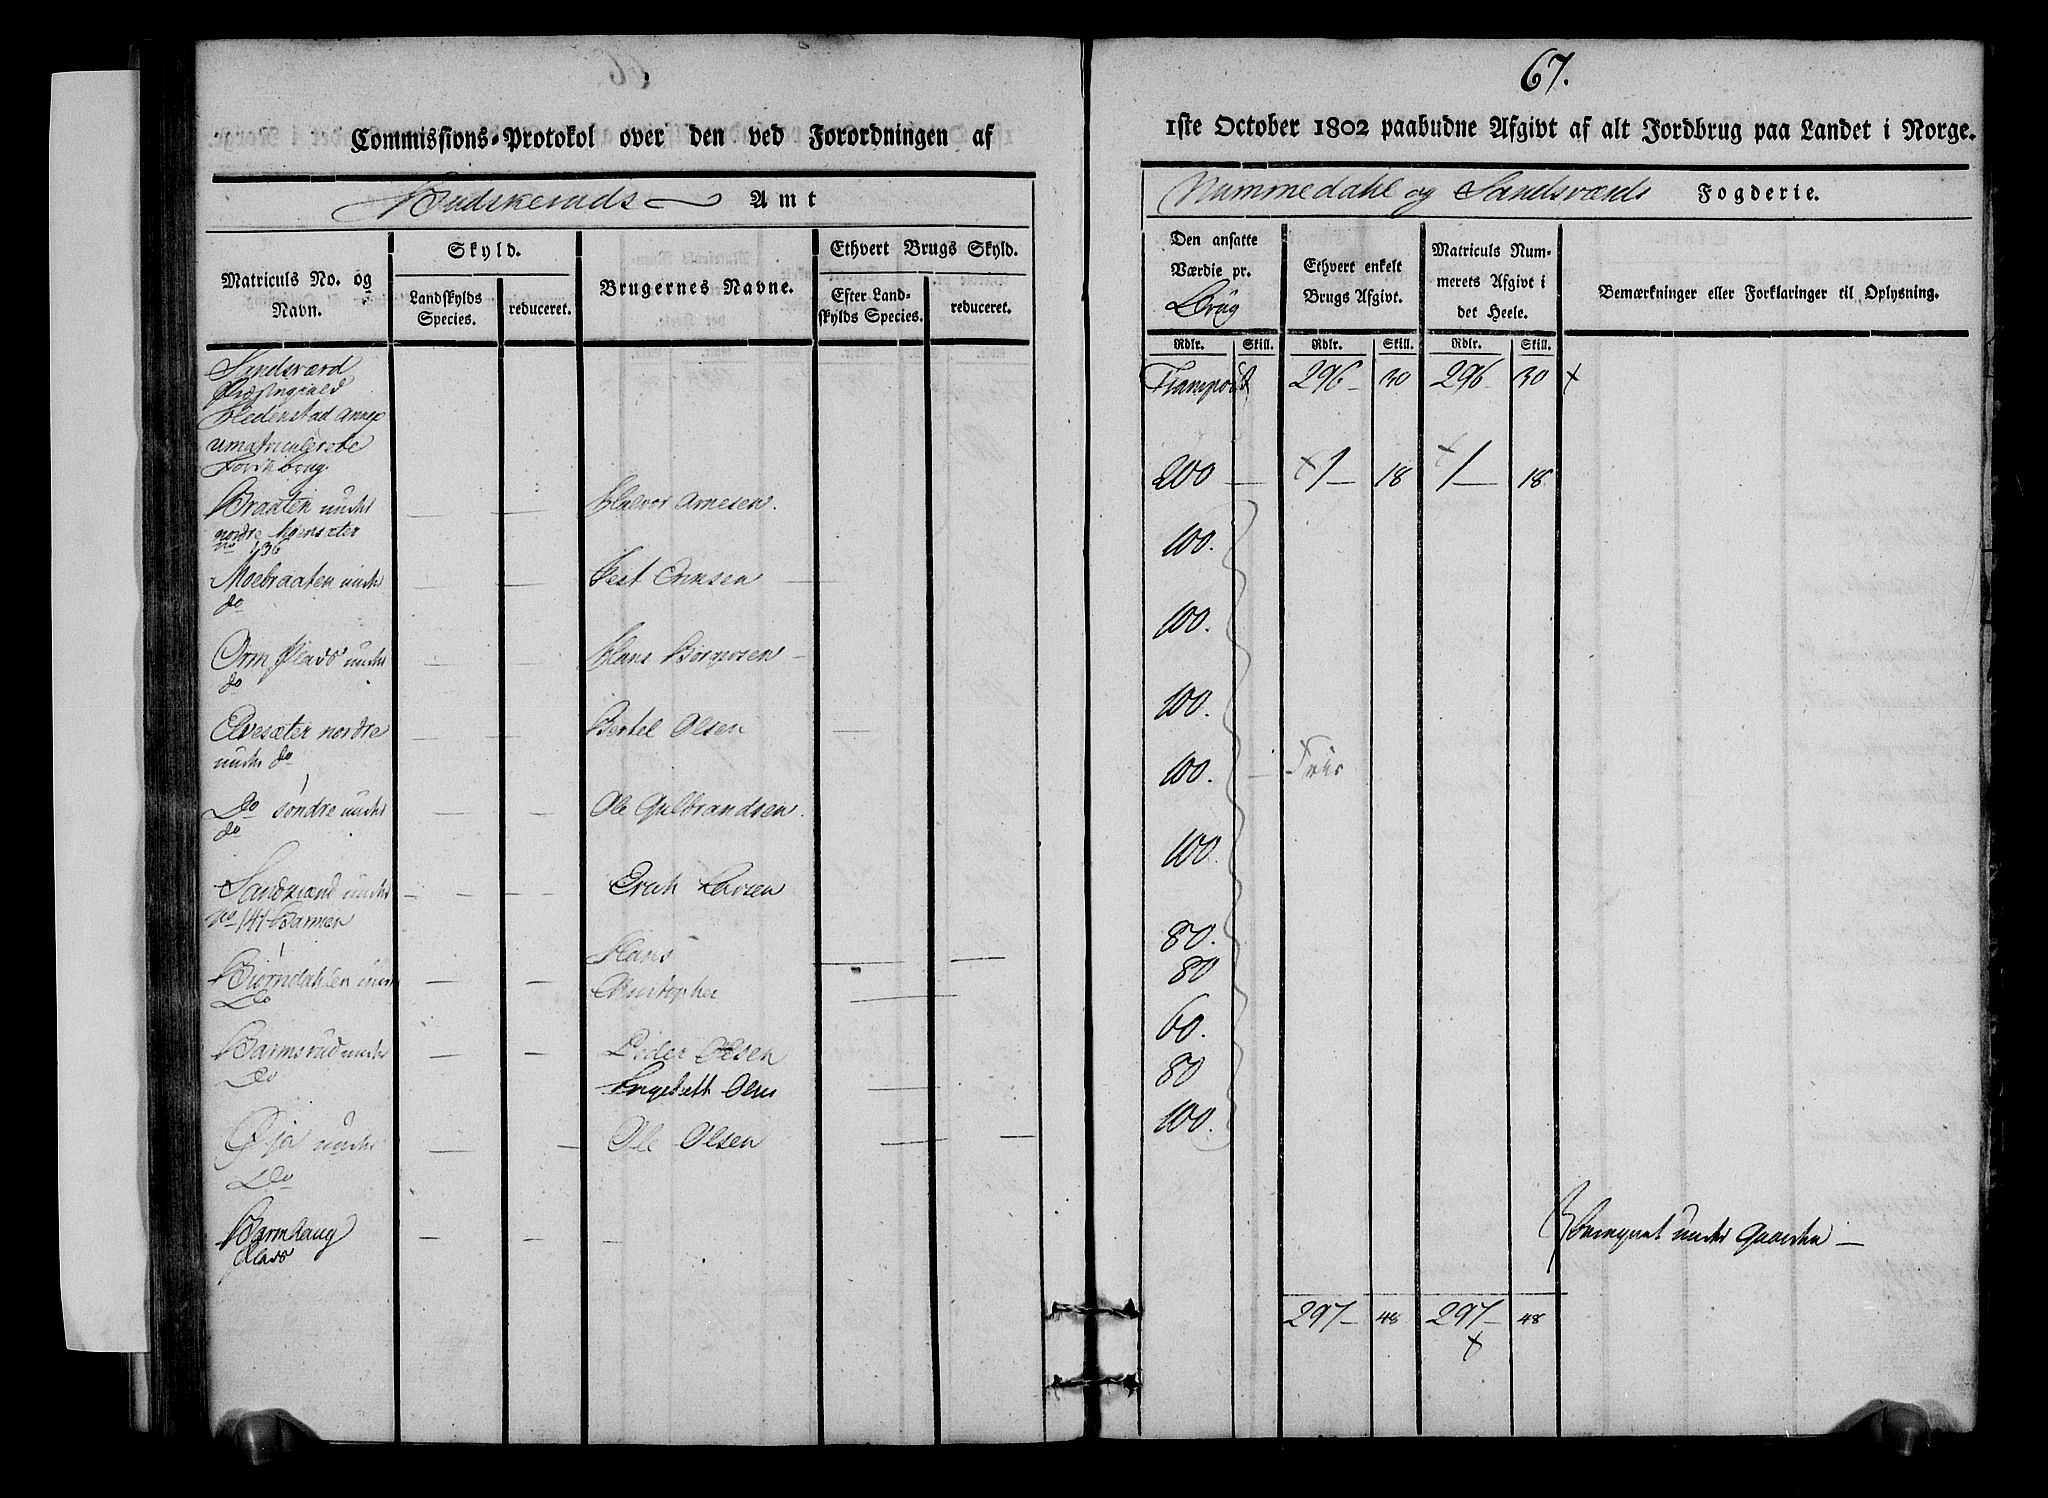 67.
Commissions-Protokol over den ved Forordningen af
1ste October 1802 paabudne Afgivt af alt Jordbrug paa Landet i Norge.
Budskeruds Amt
Nummedahl og Sandsværds Fogderie.
Matriculs No. og Navn.
Skyld.
Landskylds Species.
reduceret.
Brugernes Navne.
Ethvert Brugs Skyld.
Efter Landskylds Species.
reduceret.
Den ansatte Værdie pr. Brug
Ethvert enkelt Brugs Afgivt.
Matriculs Nummerets Afgivt i det Heele.
Bemærkninger eller Forklaringer til Oplysning.
Rdlr. Skill. Rdlr. Skill. Rdlr. Skill.
Sandsværd
Præstegield
Transport 296 30 296 30
Hedenstad annex
umatriculerede
Jordbrug
Braaten under Halvor Arnesen. 200 — 1 — 18 1 — 18
nordre Moensæter
no 136
100.
Moebraaten under
do
100.
Orm Plads under Hans Borgersen
do
100.
Elvesæter nordre Bertel Olsen
under do
100. — Frie
Do søndre under Ole Gulbrandsen.
do
100.
Sandsund under Erich Larsen
No 141 Barmen
80.
Biørndahlen under Hans
Do Christopher
80
60.
Barmsrud under Peder Olsen
Do Engebrett Olsen
80
100.
Øja under Ole Olsen
Do
Barmhaug
Plads
under Gaarden —
297 — 48 297 — 48